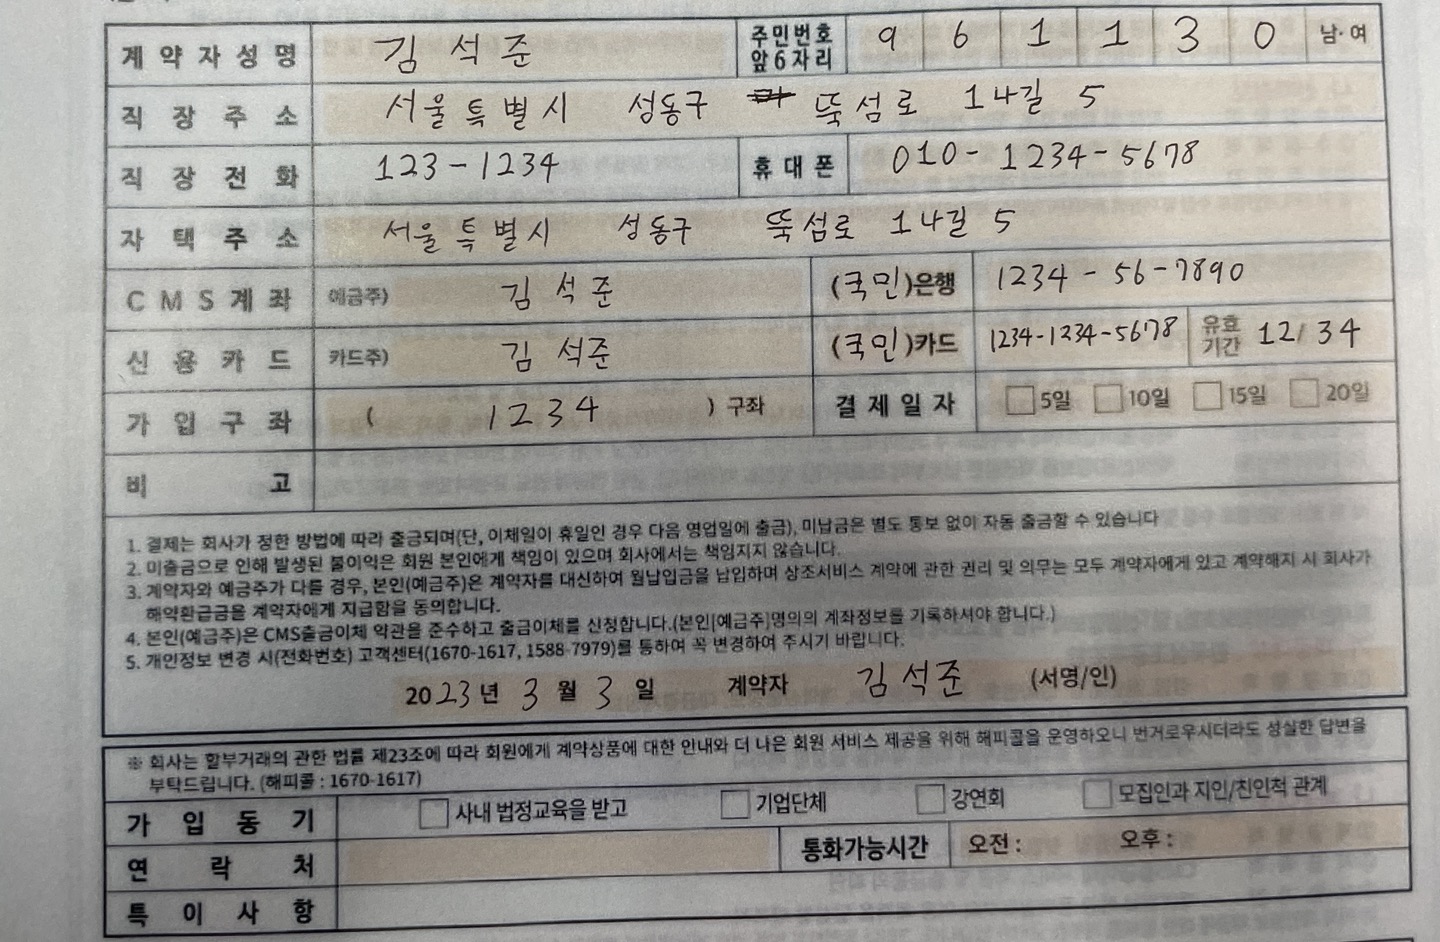 계약자성명 김석준 주민번호 앞6자리 9 6 1 1 3 0 남·여
직장주소 서울특별시 성동구 뚝섬로 1나길 5
직장전화 123-1234 휴대폰 010-1234-5678
자택주소 서울특별시 성동구 뚝섬로 1나길 5
CMS계좌 예금주) 김석준 (국민)은행 1234-56-7890
신용카드 카드주) 김석준 (국민)카드 1234-1234-5678 유효기간 12/34
가입구좌 ( 1234 ) 구좌 결제일자 □5일 □10일 □15일 □20일
비고
1. 결제는 회사가 정한 방법에 따라 출금되며(단, 이체일이 휴일인 경우 다음 영업일에 출금), 미납금은 별도 통보 없이 자동 출금할 수 있습니다
2. 미출금으로 인해 발생된 불이익은 회원 본인에게 책임이 있으며 회사에서는 책임지지 않습니다.
3. 계약자와 예금주가 다를 경우, 본인(예금주)은 계약자를 대신하여 월납입금을 납입하며 상조서비스 계약에 관한 권리 및 의무는 모두 계약자에게 있고 계약해지 시 회사가
해약환급금을 계약자에게 지급함을 동의합니다.
4. 본인(예금주)은 CMS출금이체 약관을 준수하고 출금이체를 신청합니다.(본인[예금주]명의의 계좌정보를 기록하셔야 합니다.)
5. 개인정보 변경 시(전화번호) 고객센터(1670-1617, 1588-7979)를 통하여 꼭 변경하여 주시기 바랍니다.
2023년 3월 3일 계약자 김석준 (서명/인)
※ 회사는 할부거래의 관한 법률 제23조에 따라 회원에게 계약상품에 대한 안내와 더 나은 회원 서비스 제공을 위해 해피콜을 운영하오니 번거로우시더라도 성실한 답변을
부탁드립니다. (해피콜 : 1670-1617)
가입동기 □ 사내 법정교육을 받고 □ 기업단체 □ 강연회 □ 모집인과 지인/친인척 관계
연락처 통화가능시간 오전 : 오후 :
특이사항